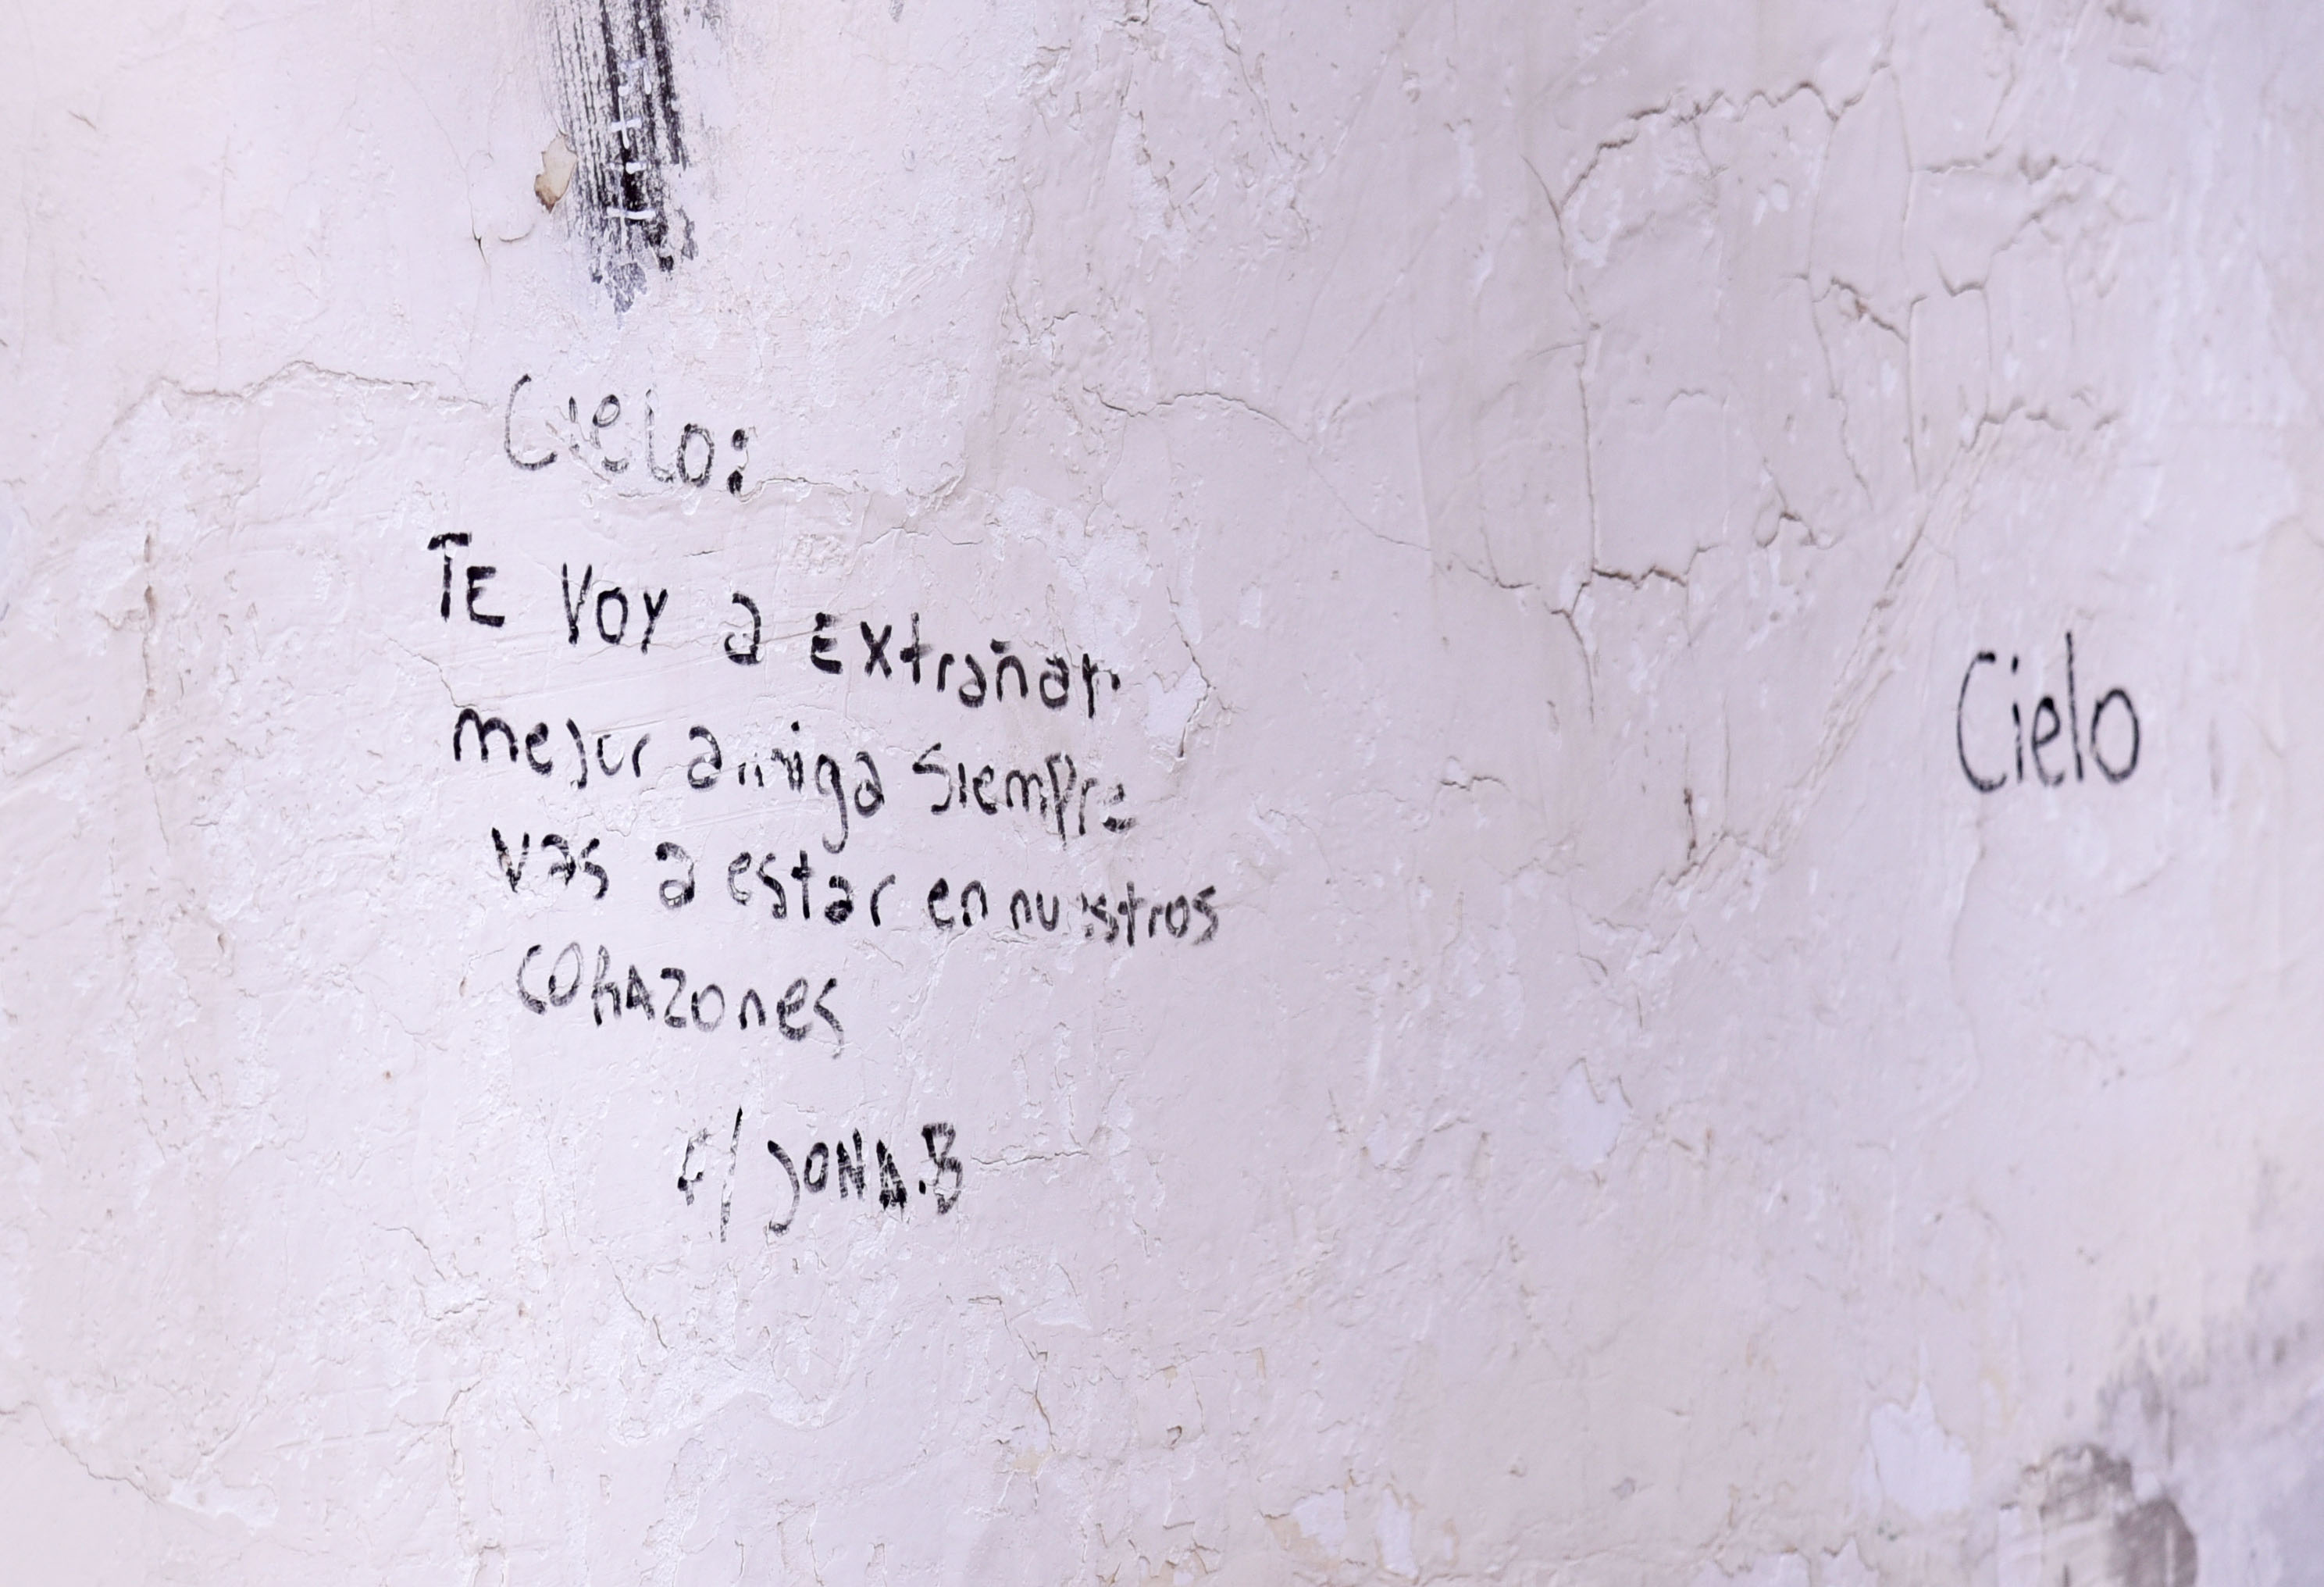 Cielo:
TE VOY a Extrañar
mejor amiga siempre
vas a estar en nuestros
CORAZONES
F/ JONA.B
Cielo